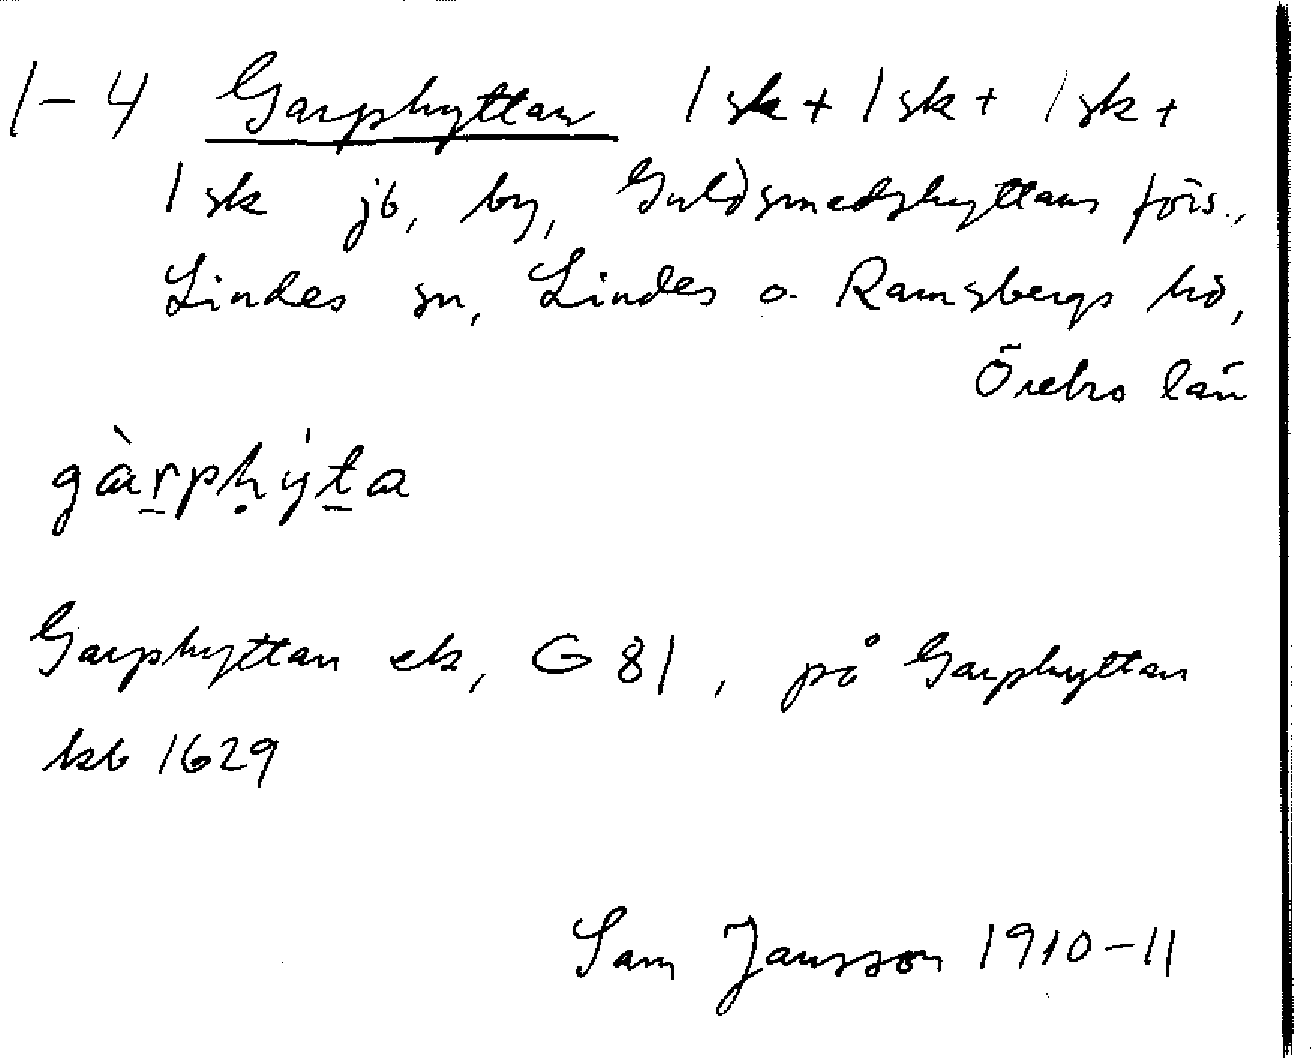 1-4 Garphyttan 1 sk + 1 sk + 1 sk +
1 sk jb, by, Guldsmedshyttans förs.,
Lindes sn, Lindes o. Ramsbergs hd,
Örebro län
gàṟpḥýṯa
Garphyttan ek, G 81, på Garphyttan
kb 1629
Sam Jansson 1910-11